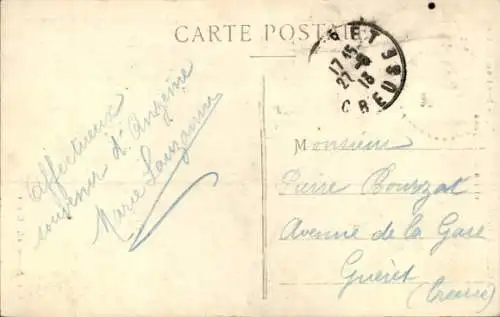 CARTE POSTALE
17 15
27 - 8
13
CREUSE
Affectueux
souvenir d'Anzême
Marie Lauzanne
Monsieur
Pierre Bourzat
Avenue de la Gare
Guéret
(Creuse)